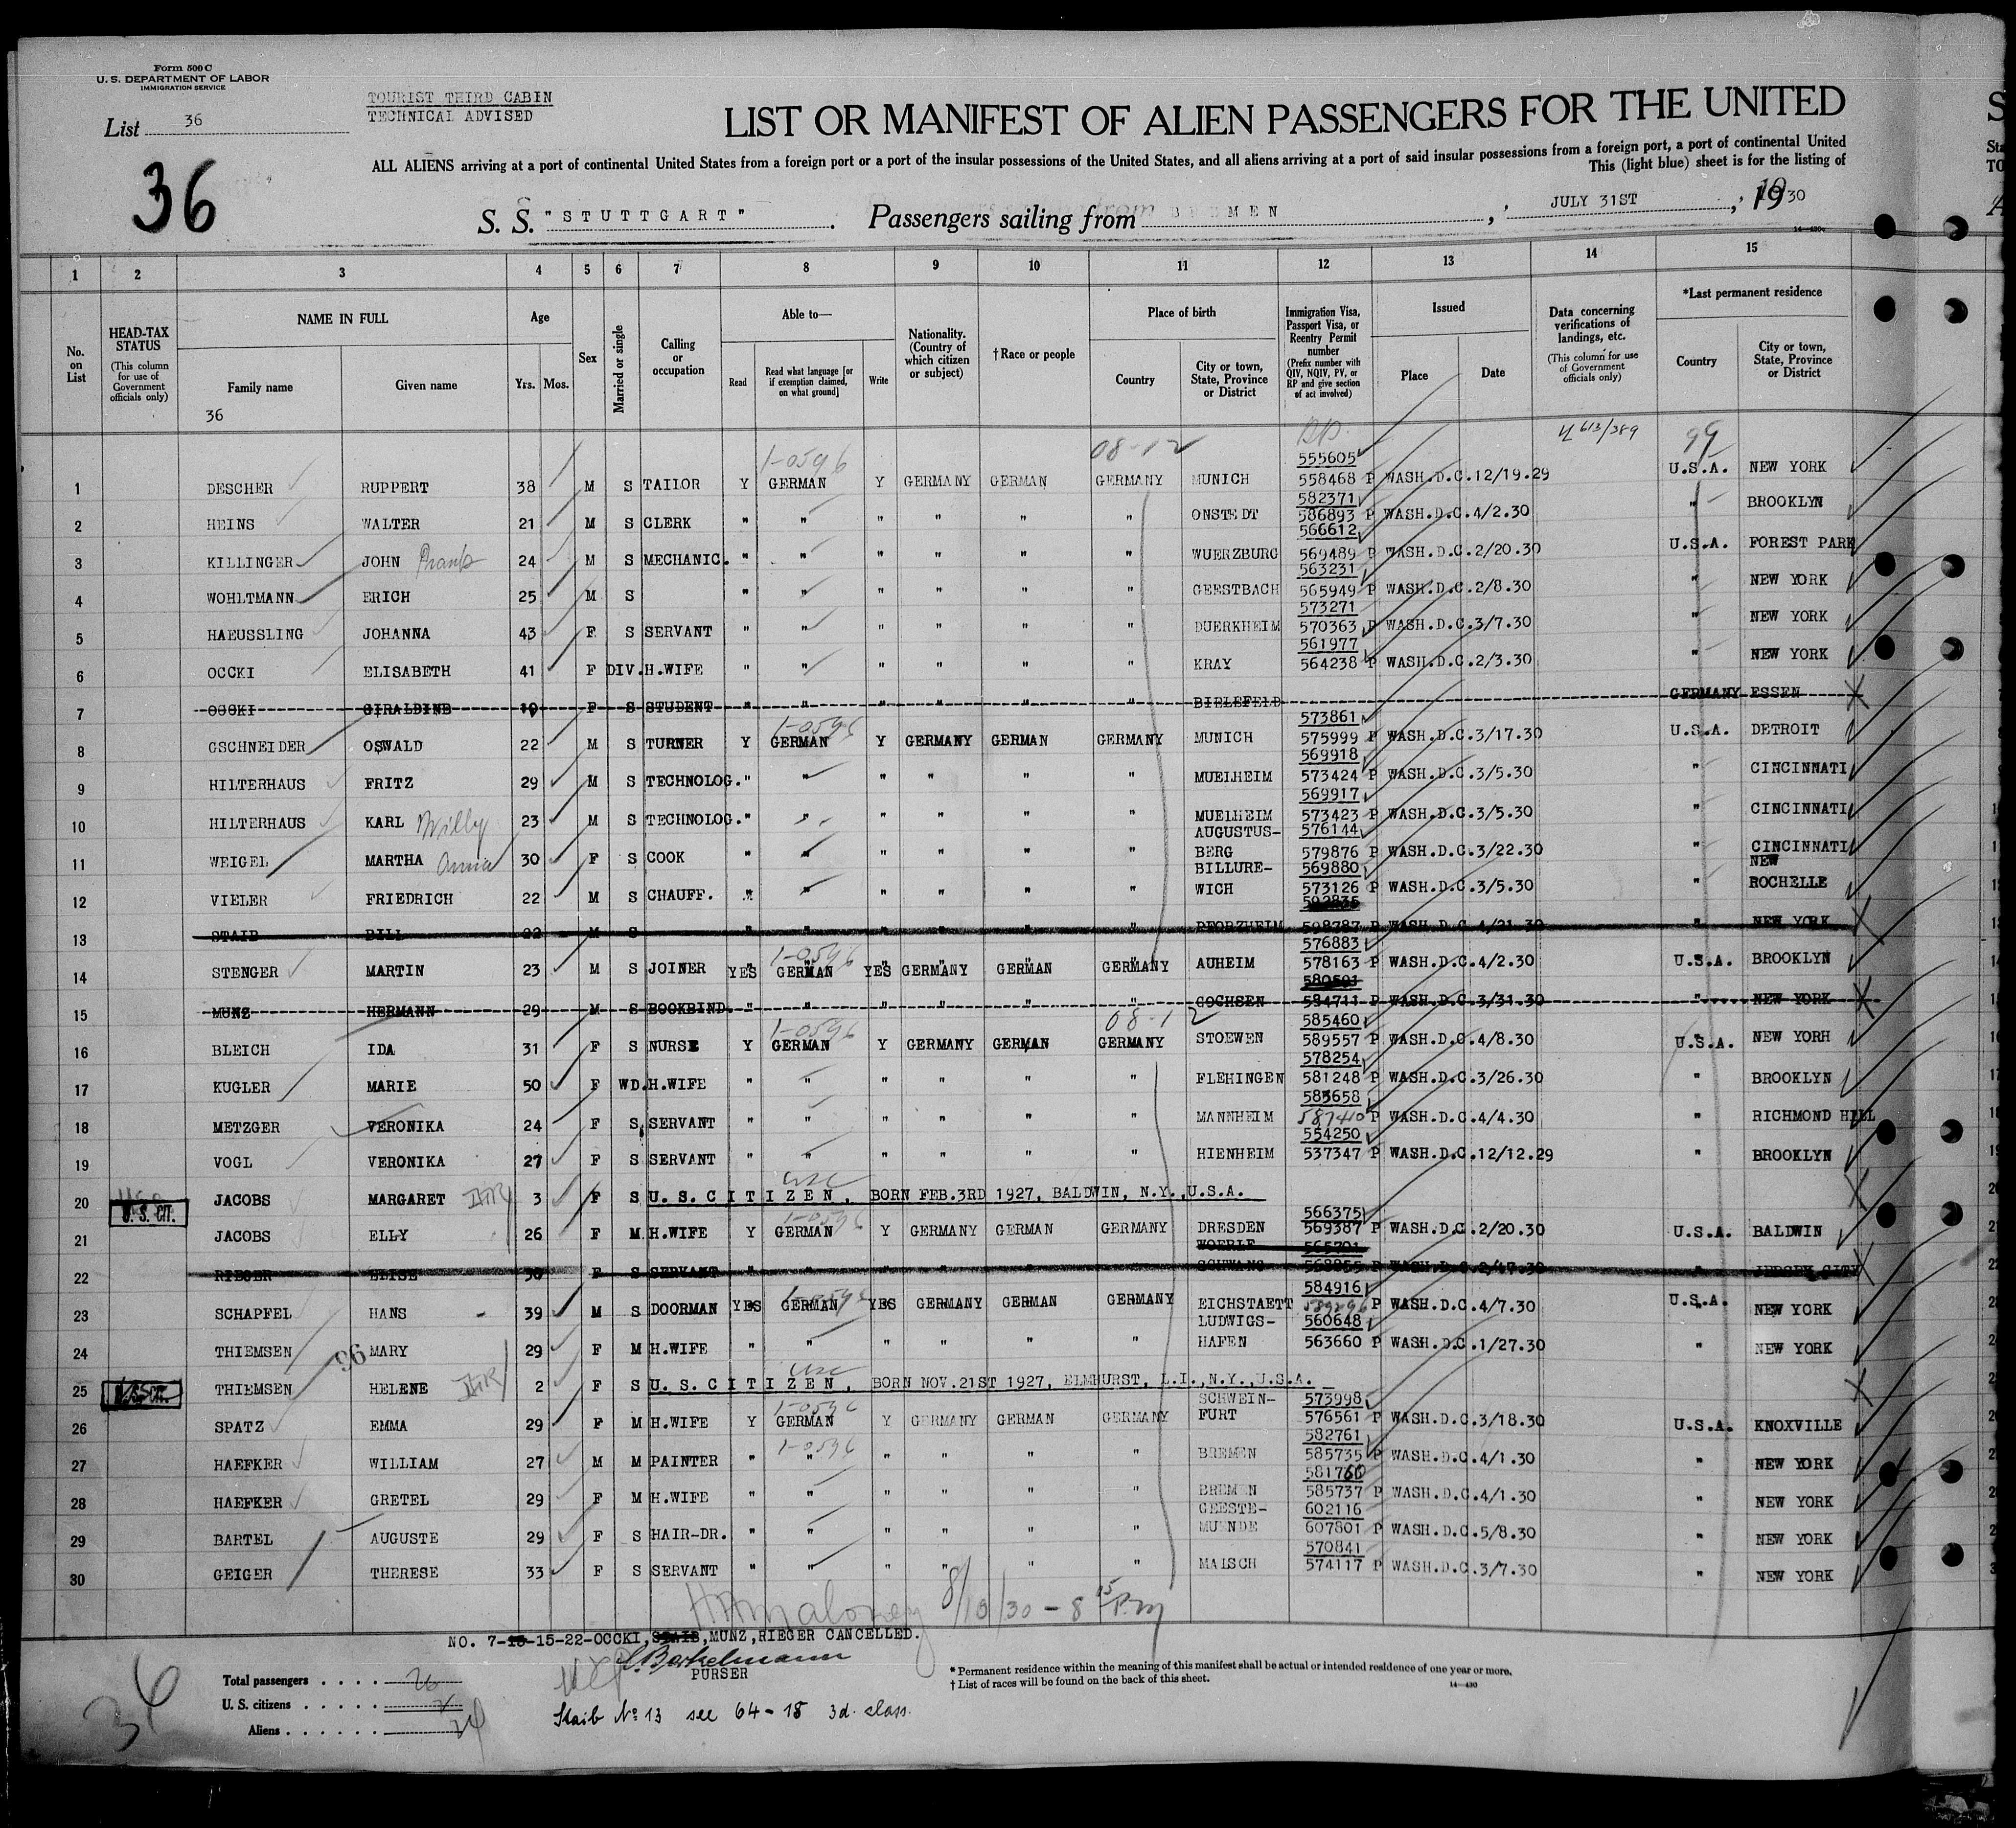 Form 500 C
U. S. DEPARTMENT OF LABOR
IMMIGRATION SERVICE
TOURIST THIRD CABIN
TECHNICAL ADVISED
List 36
36
LIST OR MANIFEST OF ALIEN PASSENGERS FOR THE UNITED
ALL ALIENS arriving at a port of continental United States from a foreign port or a port of the insular possessions of the United States, and all aliens arriving at a port of said insular possessions from a foreign port, a port of continental United
This (light blue) sheet is for the listing of
S. S. "STUTTGART". Passengers sailing from BREMEN, JULY 31ST, 1930
1 2 3 4 5 6 7 8 9 10 11 12 13 14 15
No. on List
HEAD-TAX STATUS (This column for use of Government officials only)
NAME IN FULL Family name Given name
Age Yrs. Mos.
Sex
Married or single
Calling or occupation
Able to— Read Read what language [or if exemption claimed, on what ground] Write
Nationality. (Country of which citizen or subject)
† Race or people
Place of birth Country City or town, State, Province or District
Immigration Visa, Passport Visa, or Reentry Permit number (Prefix number with QIV, NQIV, PV, or RP and give section of act involved)
Issued Place Date
Data concerning verifications of landings, etc. (This column for use of Government officials only)
*Last permanent residence Country City or town, State, Province or District
36
1-0596 08-12 4 613/389 99
555605
1 DESCHER RUPPERT 38 M S TAILOR Y GERMAN Y GERMANY GERMAN GERMANY MUNICH 558468 P WASH.D.C.12/19.29 U.S.A. NEW YORK
582371
2 HEINS WALTER 21 M S CLERK " " " " " " ONSTEDT 586893 P WASH.D.C.4/2.30 " BROOKLYN
566612
3 KILLINGER JOHN Frank 24 M S MECHANIC. " " " " " " WUERZBURG 569489 P WASH.D.C.2/20.30 U.S.A. FOREST PARK
563231
4 WOHLTMANN ERICH 25 M S " " " " " " GEESTBACH 565949 P WASH.D.C.2/8.30 " NEW YORK
573271
5 HAEUSSLING JOHANNA 43 F S SERVANT " " " " " " DUERKHEIM 570363 P WASH.D.C.3/7.30 " NEW YORK
561977
6 OCCKI ELISABETH 41 F DIV. H.WIFE " " " " " " KRAY 564238 P WASH.D.C.2/3.30 " NEW YORK
7 OCCKI GIRALDINE F S STUDENT " " " " " " BIELEFELD GERMANY ESSEN
1-0596 573861
8 GSCHNEIDER OSWALD 22 M S TURNER Y GERMAN Y GERMANY GERMAN GERMANY MUNICH 575999 P WASH.D.C.3/17.30 U.S.A. DETROIT
569918
9 HILTERHAUS FRITZ 29 M S TECHNOLOG. " " " " " " MUELHEIM 573424 P WASH.D.C.3/5.30 " CINCINNATI
569917
10 HILTERHAUS KARL Willy 23 M S TECHNOLOG. " " " " " " MUELHEIM 573423 P WASH.D.C.3/5.30 " CINCINNATI
AUGUSTUS- 576144
11 WEIGEL MARTHA Anna 30 F S COOK " " " " " " BERG 579876 P WASH.D.C.3/22.30 " CINCINNATI
BILLURE- 569880 NEW
12 VIELER FRIEDRICH 22 M S CHAUFF. " " " " " " WICH 573126 P WASH.D.C.3/5.30 " ROCHELLE
13 STAIB BILL 22 M S " " " " " " PFORZHEIM 598787 P WASH.D.C.4/21.30 " NEW YORK
1-0596 576883
14 STENGER MARTIN 23 M S JOINER YES GERMAN YES GERMANY GERMAN GERMANY AUHEIM 578163 P WASH.D.C.4/2.30 U.S.A. BROOKLYN
15 MUNZ HERMANN 29 M S BOOKBIND. " " " " " " COCHSEN 584711 P WASH.D.C.3/31.30 " NEW YORK
1-0596 08-12 585460
16 BLEICH IDA 31 F S NURSE Y GERMAN Y GERMANY GERMAN GERMANY STOEWEN 589557 P WASH.D.C.4/8.30 U.S.A. NEW YORH
578254
17 KUGLER MARIE 50 F WD. H.WIFE " " " " " " FLEHINGEN 581248 P WASH.D.C.3/26.30 " BROOKLYN
585658
18 METZGER VERONIKA 24 F S SERVANT " " " " " " MANNHEIM 587410 P WASH.D.C.4/4.30 " RICHMOND HILL
554250
19 VOGL VERONIKA 27 F S SERVANT " " " " " " HIENHEIM 537347 P WASH.D.C.12/12.29 " BROOKLYN
usc
20 U. S. CIT. JACOBS MARGARET 3 F S U. S. C I T I Z E N , BORN FEB.3RD 1927, BALDWIN, N.Y.,U.S.A.
1-0596 566375
21 JACOBS ELLY 26 F M H.WIFE Y GERMAN Y GERMANY GERMAN GERMANY DRESDEN 569387 P WASH.D.C.2/20.30 U.S.A. BALDWIN
WOERLE 565701
22 RIEGER ELISE 30 F S SERVANT " " " " " " SCHWANG 568855 P WASH.D.C.2/17.30 " JERSEY CITY
1-0596 584916
23 SCHAPFEL HANS 39 M S DOORMAN YES GERMAN YES GERMANY GERMAN GERMANY EICHSTAETT P WASH.D.C.4/7.30 U.S.A. NEW YORK
LUDWIGS- 560648
24 THIEMSEN MARY 29 F M H.WIFE " " " " " " HAFEN 563660 P WASH.D.C.1/27.30 " NEW YORK
96 usc
25 THIEMSEN HELENE 2 F S U. S. C I T I Z E N , BORN NOV.21ST 1927, ELMHURST, L.I.,N.Y.,U.S.A.
1-0596 SCHWEIN- 573998
26 SPATZ EMMA 29 F M H.WIFE Y GERMAN Y GERMANY GERMAN GERMANY FURT 576561 P WASH.D.C.3/18.30 U.S.A. KNOXVILLE
1-0596 582761
27 HAEFKER WILLIAM 27 M M PAINTER " " " " " " BREMEN 585735 P WASH.D.C.4/1.30 " NEW YORK
581766
28 HAEFKER GRETEL 29 F M H.WIFE " " " " " " BREMEN 585737 P WASH.D.C.4/1.30 " NEW YORK
GEESTE- 602116
29 BARTEL AUGUSTE 29 F S HAIR-DR. " " " " " " MUENDE 607801 P WASH.D.C.5/8.30 " NEW YORK
570841
30 GEIGER THERESE 33 F S SERVANT " " " " " " MALSCH 574117 P WASH.D.C.3/7.30 " NEW YORK
Maloney 8/10/30 - 8 15 P.M
NO. 7-13-15-22-OCCKI,STAIB,MUNZ,RIEGER CANCELLED.
PURSER
Total passengers 26
U. S. citizens 2
Aliens 24
36
Staib No 13 see 64-18 3d. class.
* Permanent residence within the meaning of this manifest shall be actual or intended residence of one year or more.
† List of races will be found on the back of this sheet.
14—430